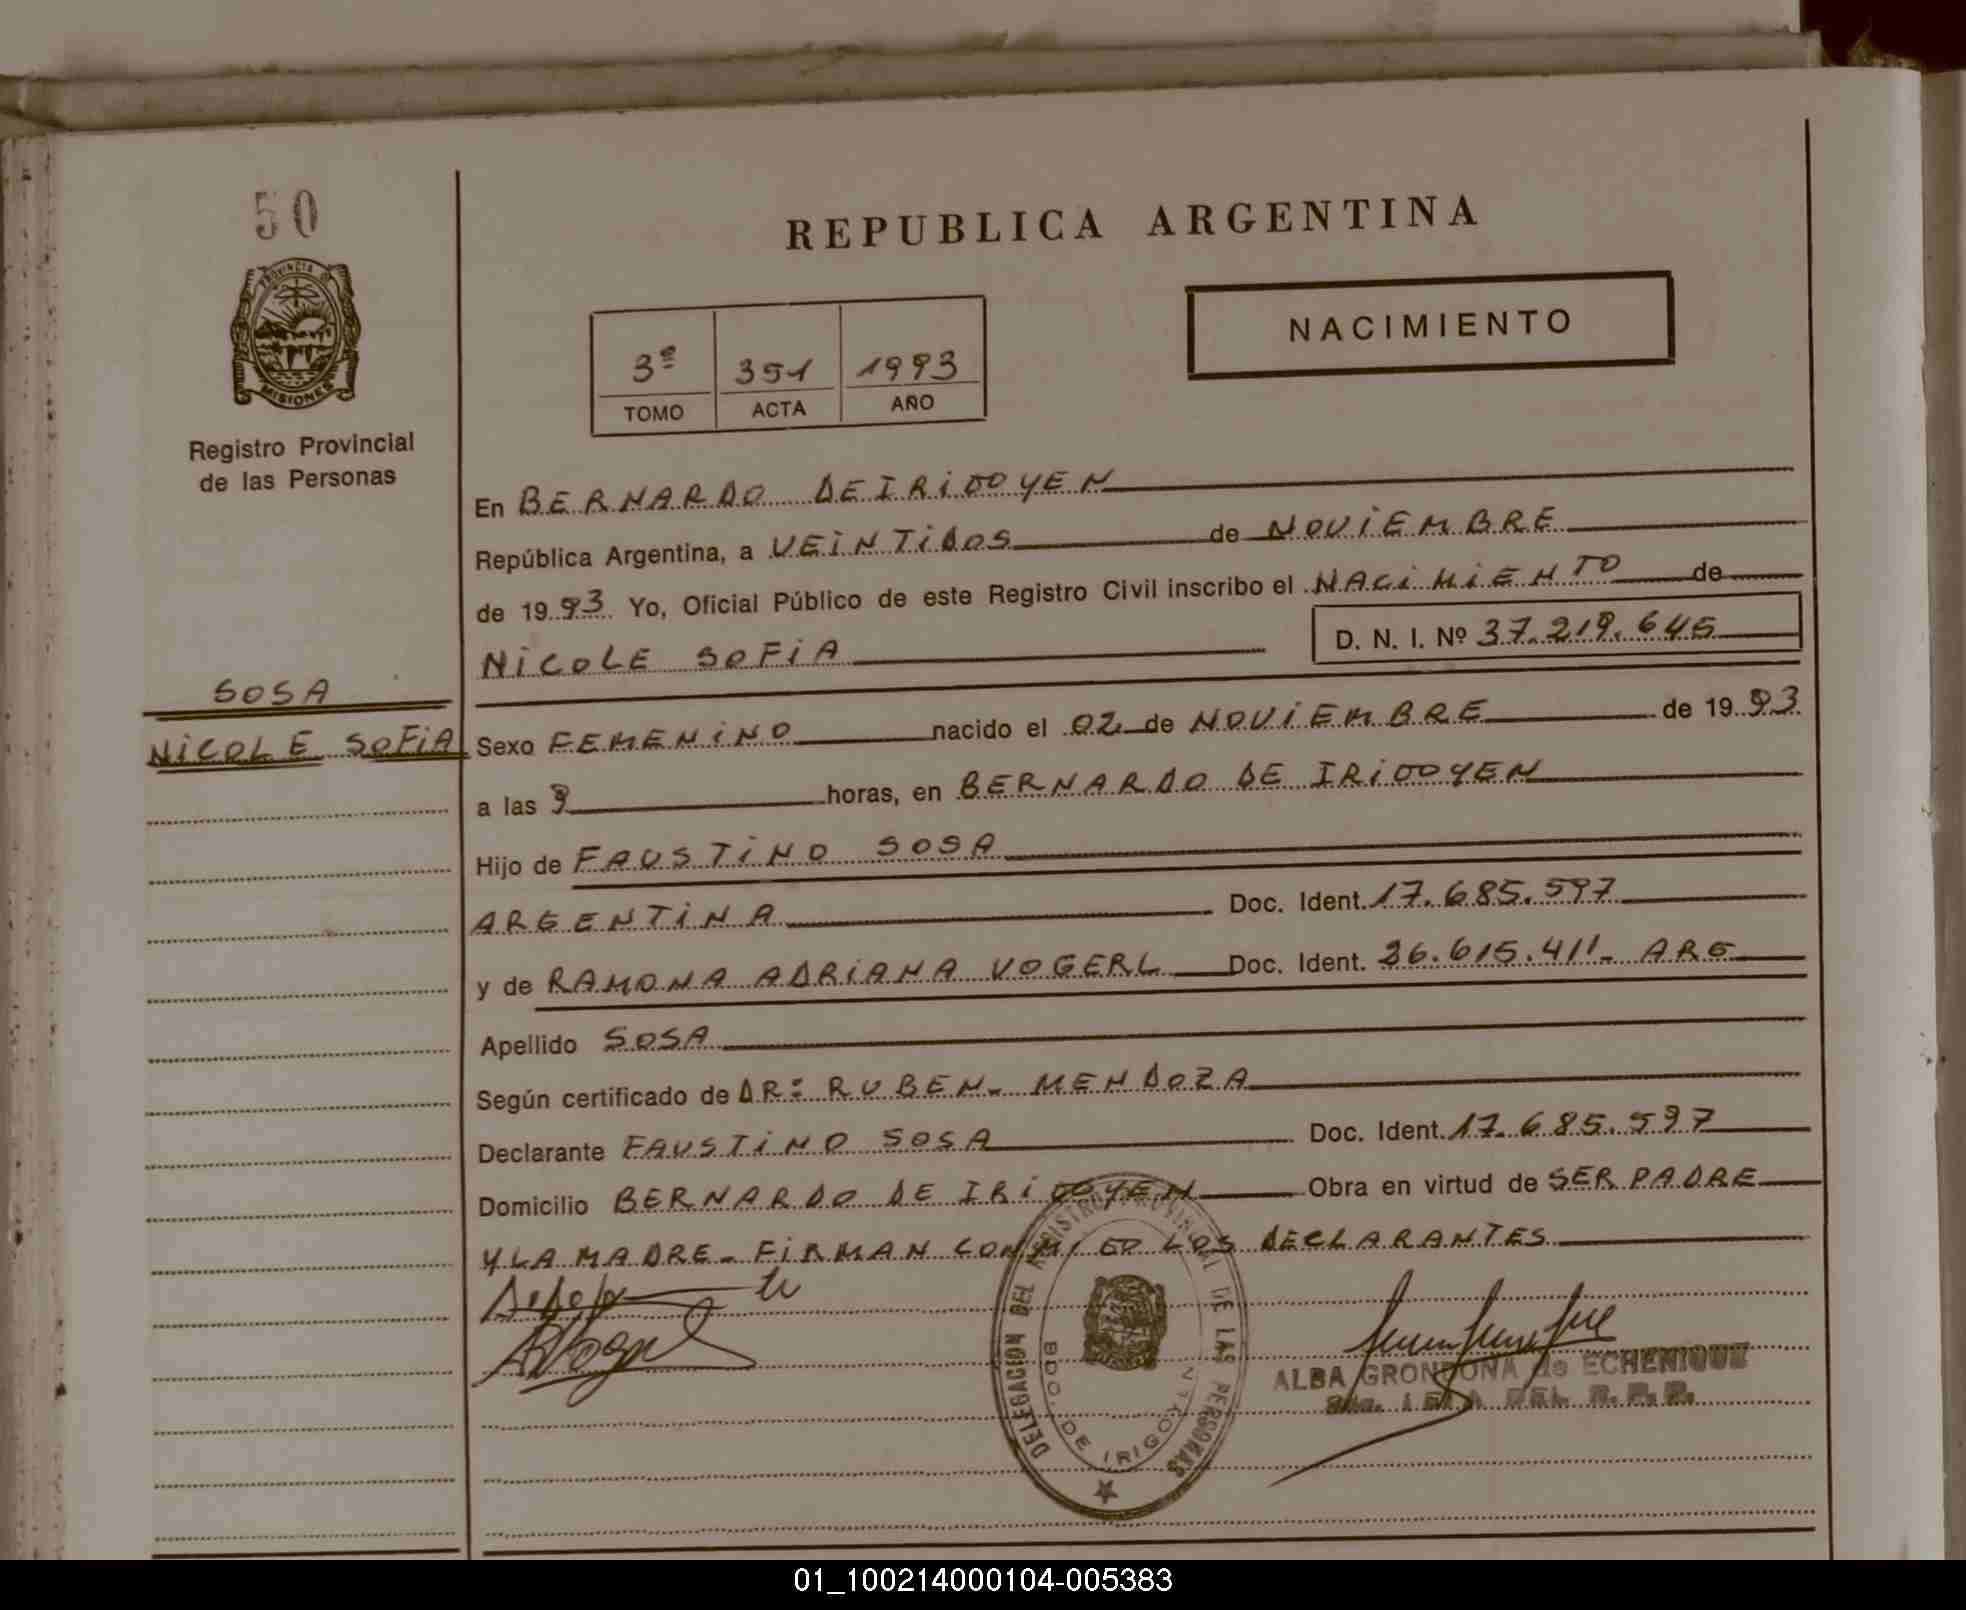 50
REPUBLICA ARGENTINA
NACIMIENTO
PROVINCIA DE
MISIONES
3º 351 1993
TOMO ACTA AÑO
Registro Provincial
de las Personas
En BERNARDO DE IRIGOYEN
República Argentina, a VEINTIDOS de NOVIEMBRE
de 19 93 Yo, Oficial Público de este Registro Civil inscribo el NACIMIENTO de
NICOLE SOFIA D. N. I. Nº 37.219.645
SOSA
NICOLE SOFIA
Sexo FEMENINO nacido el 02 de NOVIEMBRE de 19 93
a las 9 horas, en BERNARDO DE IRIGOYEN
Hijo de FAUSTINO SOSA
ARGENTINA Doc. Ident. 17.685.597
y de RAMONA ADRIANA VOGERL Doc. Ident. 26.615.411- ARG
Apellido SOSA
Según certificado de DR: RUBEN - MENDOZA
Declarante FAUSTINO SOSA Doc. Ident. 17.685.597
Domicilio BERNARDO DE IRIGOYEN Obra en virtud de SER PADRE
Y LA MADRE - FIRMAN CONMIGO LOS DECLARANTES
DELEGACION DEL REGISTRO PROVINCIAL DE LAS PERSONAS
BDO. DE IRIGOYEN
ALBA GRONDONA de ECHENIQUE
DEL R. P. P.
01_100214000104-005383